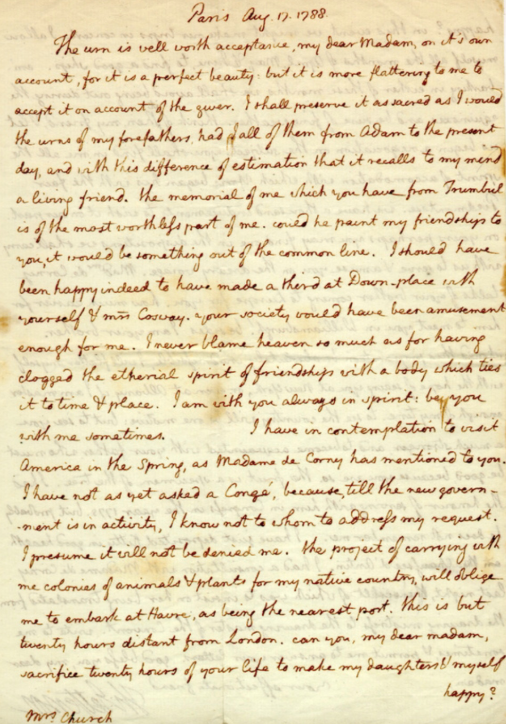 Paris Aug. 17. 1788.
The urn is well worth acceptance, my dear Madam, on it's own
account, for it is a perfect beauty: but it is more flattering to me to
accept it on account of the giver. I shall preserve it as sacred as I would
the urns of my forefathers, had I all of them from Adam to the present
day, and with this difference of estimation that it recalls to my mind
a living friend. the memorial of me which you have from Trumbul
is of the most worthless part of me. could he paint my friendship to
you, it would be something out of the common line. I should have
been happy indeed to have made a third at Down-place with
yourself & mrs Cosway. your society would have been amusement
enough for me. I never blame heaven so much as for having
clogged the etherial spirit of friendship with a body which ties
it to time & place. I am with you always in spirit: be you
with me sometimes. I have in contemplation to visit
America in the Spring, as Madame de Corny has mentioned to you.
I have not as yet asked a Congé, because, till the new govern-
-ment is in activity, I know not to whom to address my request.
I presume it will not be denied me. the project of carrying with
me colonies of animals & plants for my native country, will oblige
me to embark at Havre, as being the nearest port. this is but
twenty hours distant from London. can you, my dear madam,
sacrifice twenty hours of your life to make my daughters & myself
happy?
Mrs Church